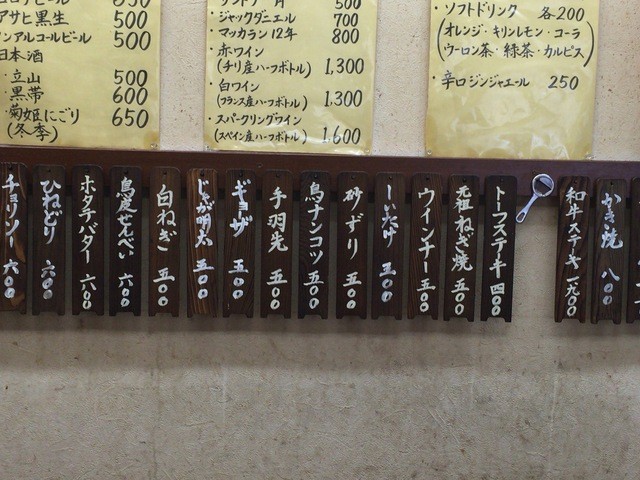 アサヒ黒生 500
ノンアルコールビール 500
日本酒
・立山 500
・黒帯 600
・菊姫にごり 650
(冬季)
・ジャックダニエル 700
・マッカラン12年 800
・赤ワイン
(チリ産ハーフボトル) 1,300
・白ワイン
(フランス産ハーフボトル) 1,300
・スパークリングワイン
(スペイン産ハーフボトル) 1,600
・ソフトドリンク 各200
(オレンジ・キリンレモン・コーラ
ウーロン茶・緑茶・カルピス)
・辛口ジンジャエール 250
チョリソー 六〇〇
ひねどり 六〇〇
ホタテバター 六〇〇
鳥皮せんべい 六〇〇
白ねぎ 五〇〇
じゃが明太 五〇〇
ギョーザ 五〇〇
手羽先 五〇〇
鳥ナンコツ 五〇〇
砂ずり 五〇〇
しいたけ 五〇〇
ウインナー 五〇〇
元祖ねぎ焼 五〇〇
トーフステーキ 四〇〇
和牛ステーキ 一九〇〇
かき焼 八〇〇